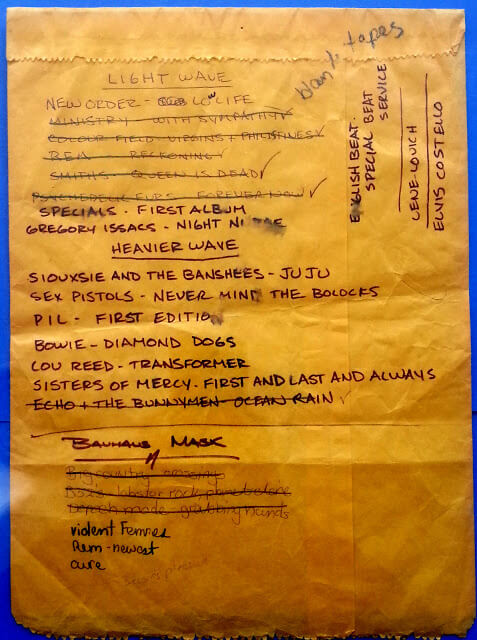 blank tapes
LIGHT WAVE
NEW ORDER - LOW LIFE
MINISTRY - WITH SYMPATHY ✓
COLOUR FIELD - VIRGINS + PHILISTINES ✓
R.E.M. - RECKONING ✓
SMITHS - QUEEN IS DEAD ✓
PSYCHEDELIC FURS - FOREVER NOW ✓
SPECIALS - FIRST ALBUM
GREGORY ISSACS - NIGHT
HEAVIER WAVE
SIOUXSIE AND THE BANSHEES - JU JU
SEX PISTOLS - NEVER MIND THE BOLOCKS
PIL - FIRST EDITION
BOWIE - DIAMOND DOGS
LOU REED - TRANSFORMER
SISTERS OF MERCY - FIRST AND LAST AND ALWAYS
ECHO + THE BUNNYMEN - OCEAN RAIN ✓
BAUHAUS MASK
Big country crossing
lobster rock planet claire
Depech mode - grabbing hands
violent Femmes
Rem - newest
cure
ENGLISH BEAT.
SPECIAL BEAT
SERVICE
LENE LOVICH
ELVIS COSTELLO